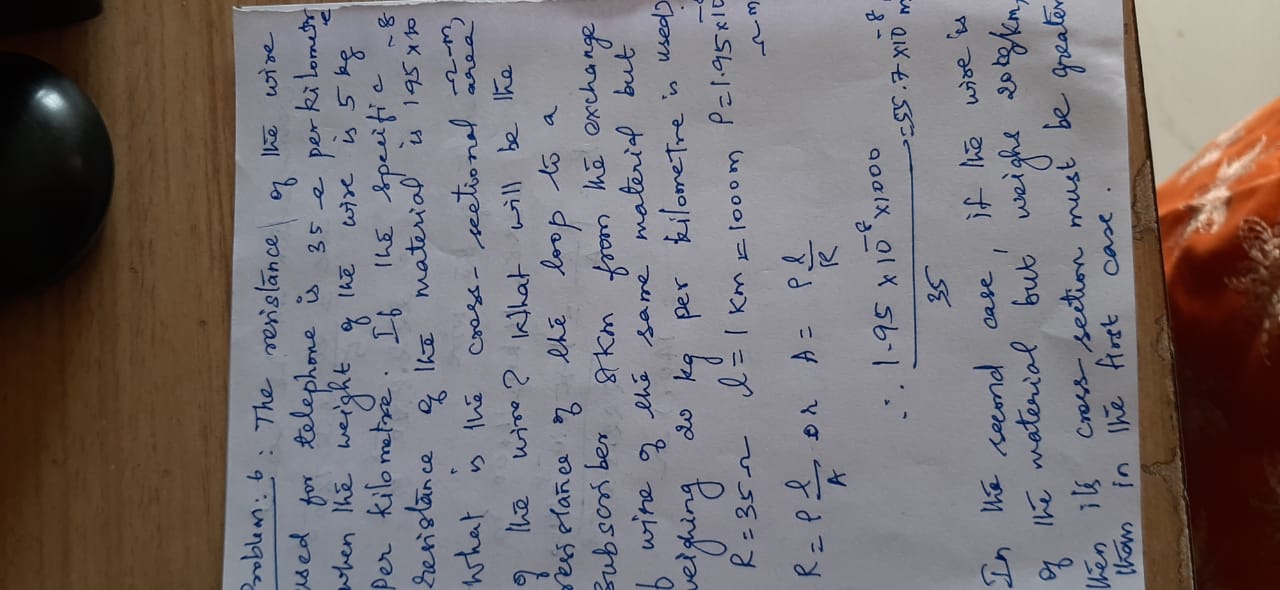 Problem: 6 : The resistance of the wire
used for telephone is 35 e per kilometre
when the weight of the wire is 5 kg
per kilometre. If the specific
resistance of the material is 195 × 10⁻⁸ Ω-m,
What is the cross-sectional area
of the wire? What will be the
resistance of the loop to a
subscriber 8 km from the exchange
b wire of the same material but
weighing 20 kg per kilometre is used?
R = 35 Ω l = 1 km = 1000 m ρ = 1.95 × 10⁻⁸ Ω-m
R = ρ l/A or A = ρ l/R
∴ 1.95 × 10⁻⁸ × 1000 / 35 = 55.7 × 10⁻⁸ m
In the second case, if the wire is
of the material but weighs 20 kg/km,
then its cross-section must be greater
than in the first case.